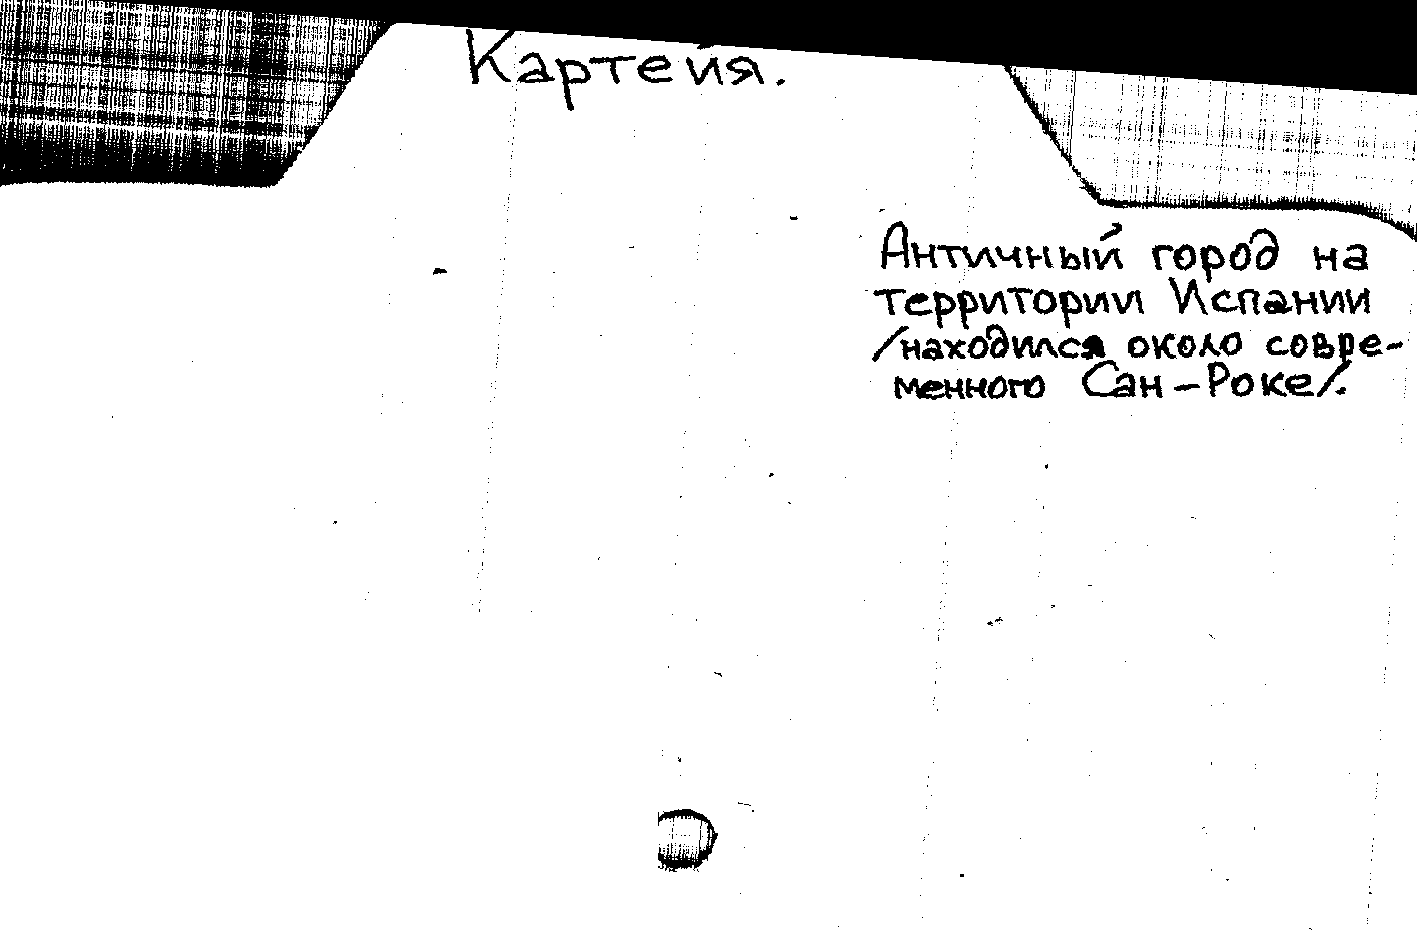 Картейя.
Античный город на
территории Испании
/находился около совре-
менного Сан-Роке/.